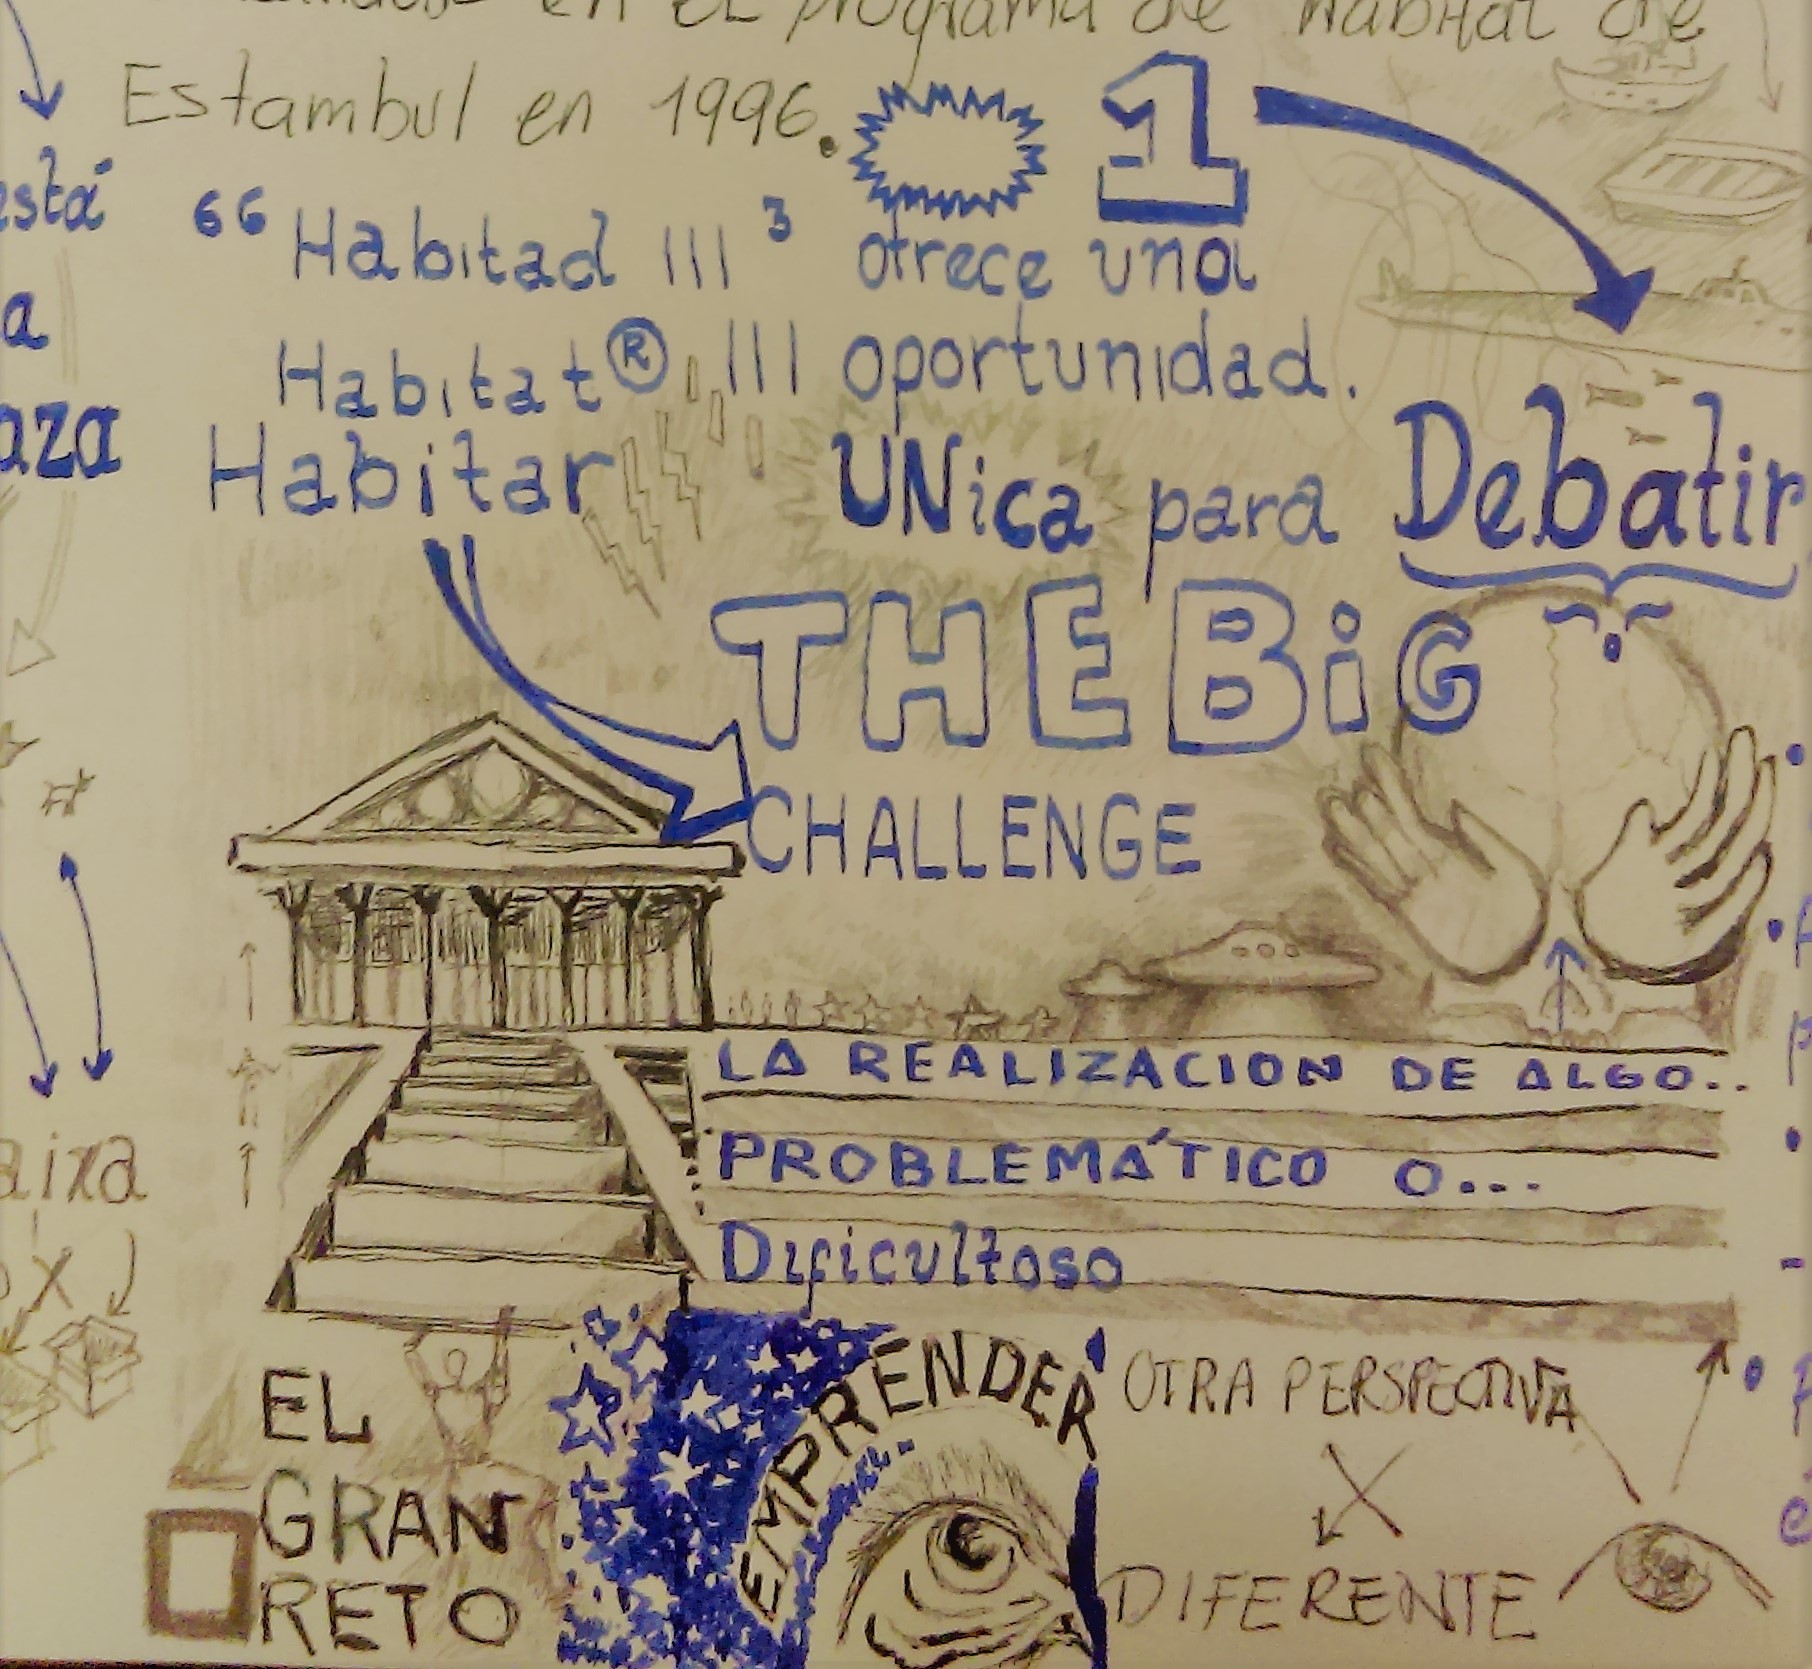 en el programa de habitat de
Estambul en 1996.
1
está
"Habitad III³ ofrece una
a
Habitat® III oportunidad.
aza
Habitar
UNica para Debatir
THE BiG
CHALLENGE
LA REALIZACION DE ALGO..
PROBLEMÁTICO O...
aixa
Dificultoso
EL
GRAN
RETO
EMPRENDER
OTRA PERSPECTIVA
X
DIFERENTE